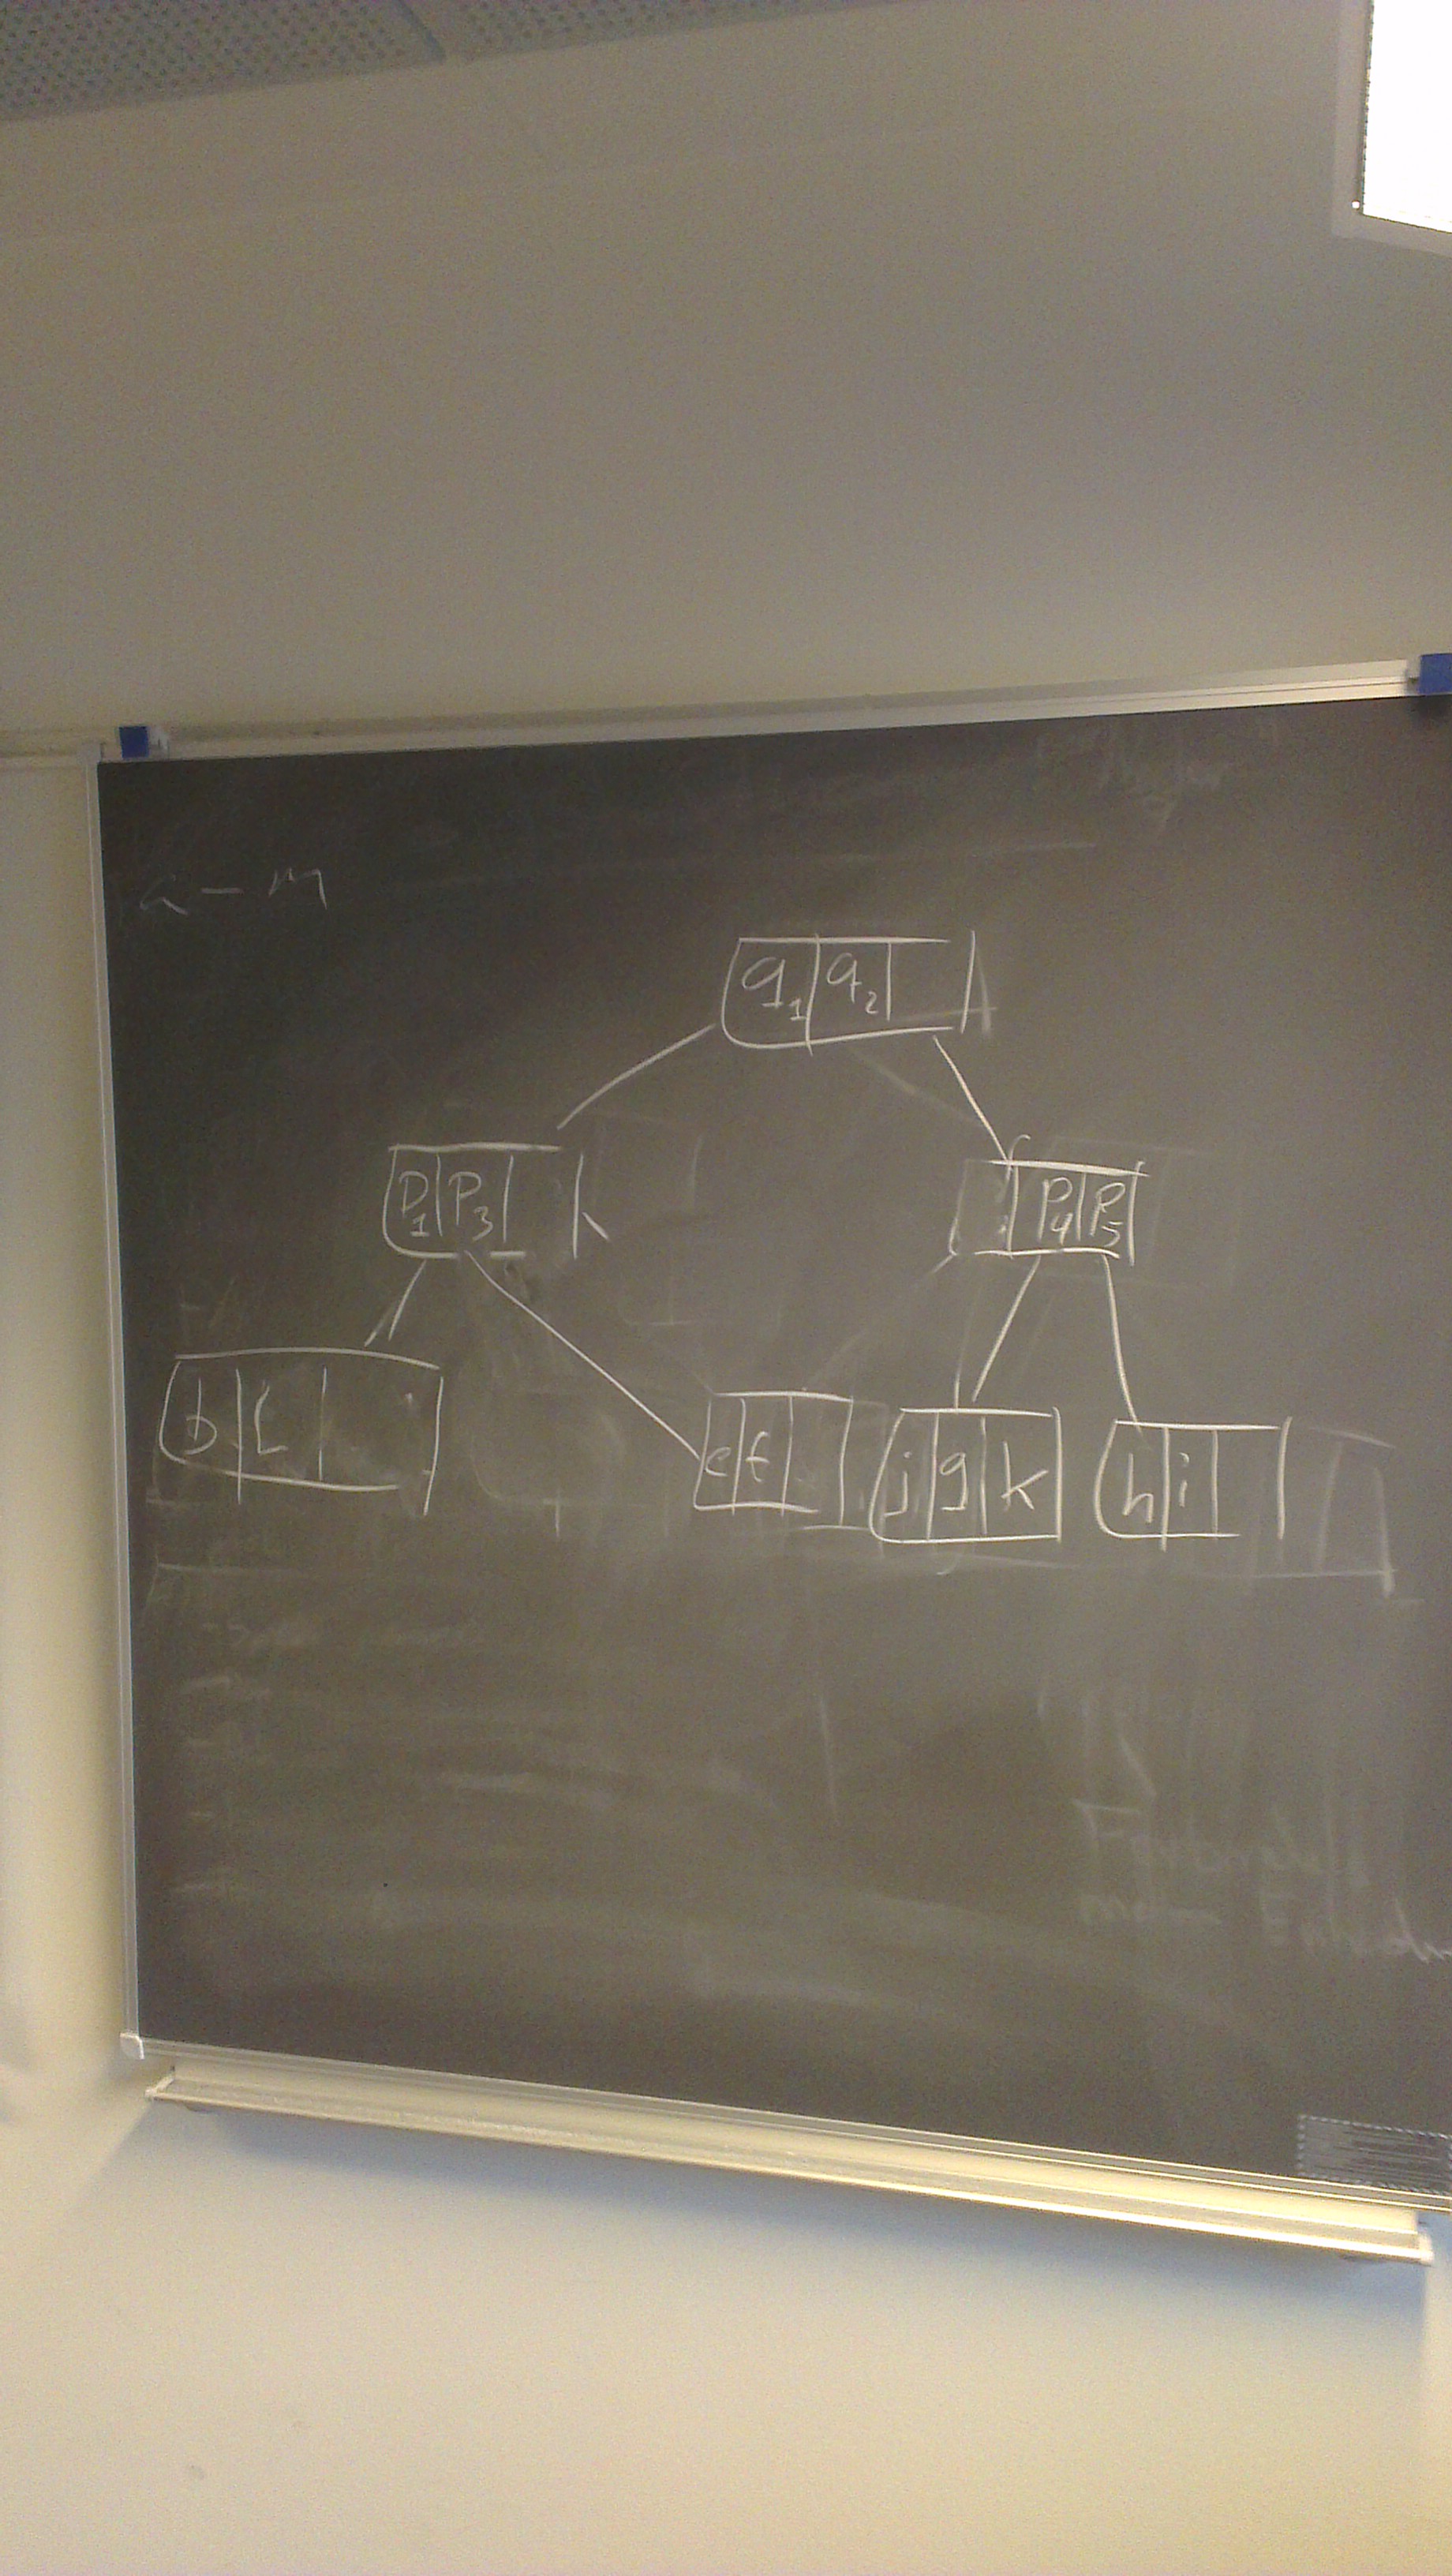 a - m
q1 q2
P1 P3 P4 P5
b c e f j g k h i